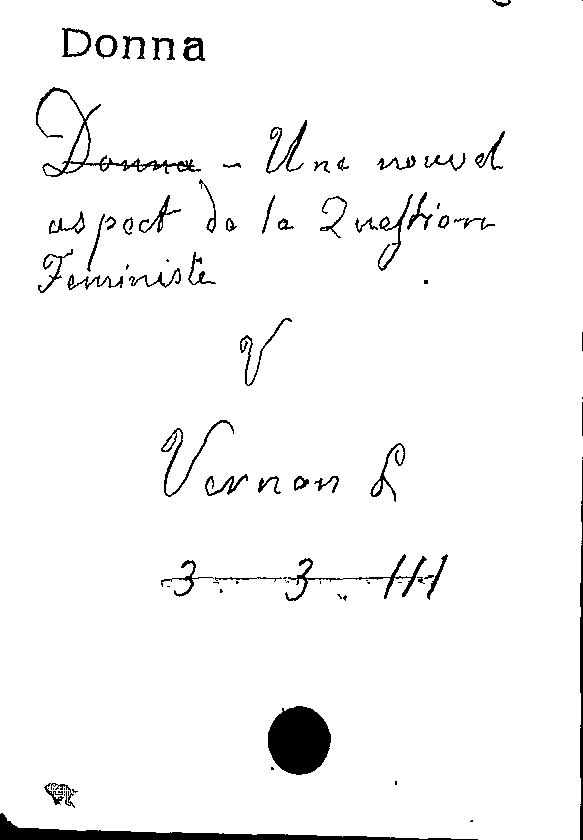 Donna
Donna - Une nouvel
aspect de la Question
Feministe
V
Vernon L
3. 3. III